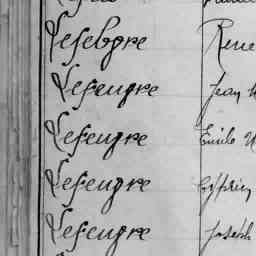 Lefebvre René
Lefeuvre Jean
Lefeuvre Emile
Lefeuvre Cyprien
Lefeuvre Joseph